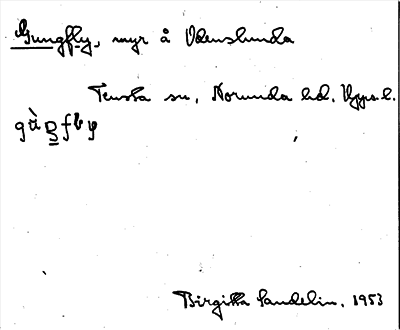 Gungfly, myr å Odenslunda
Tensta sn, Norunda hd. Upps. l.
Birgitta Sandelin. 1953